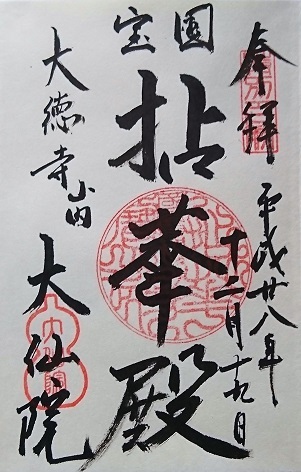 奉拝
平成廿八年
十二月十九日
宝圓
拈華殿
大徳寺山内
大仙院